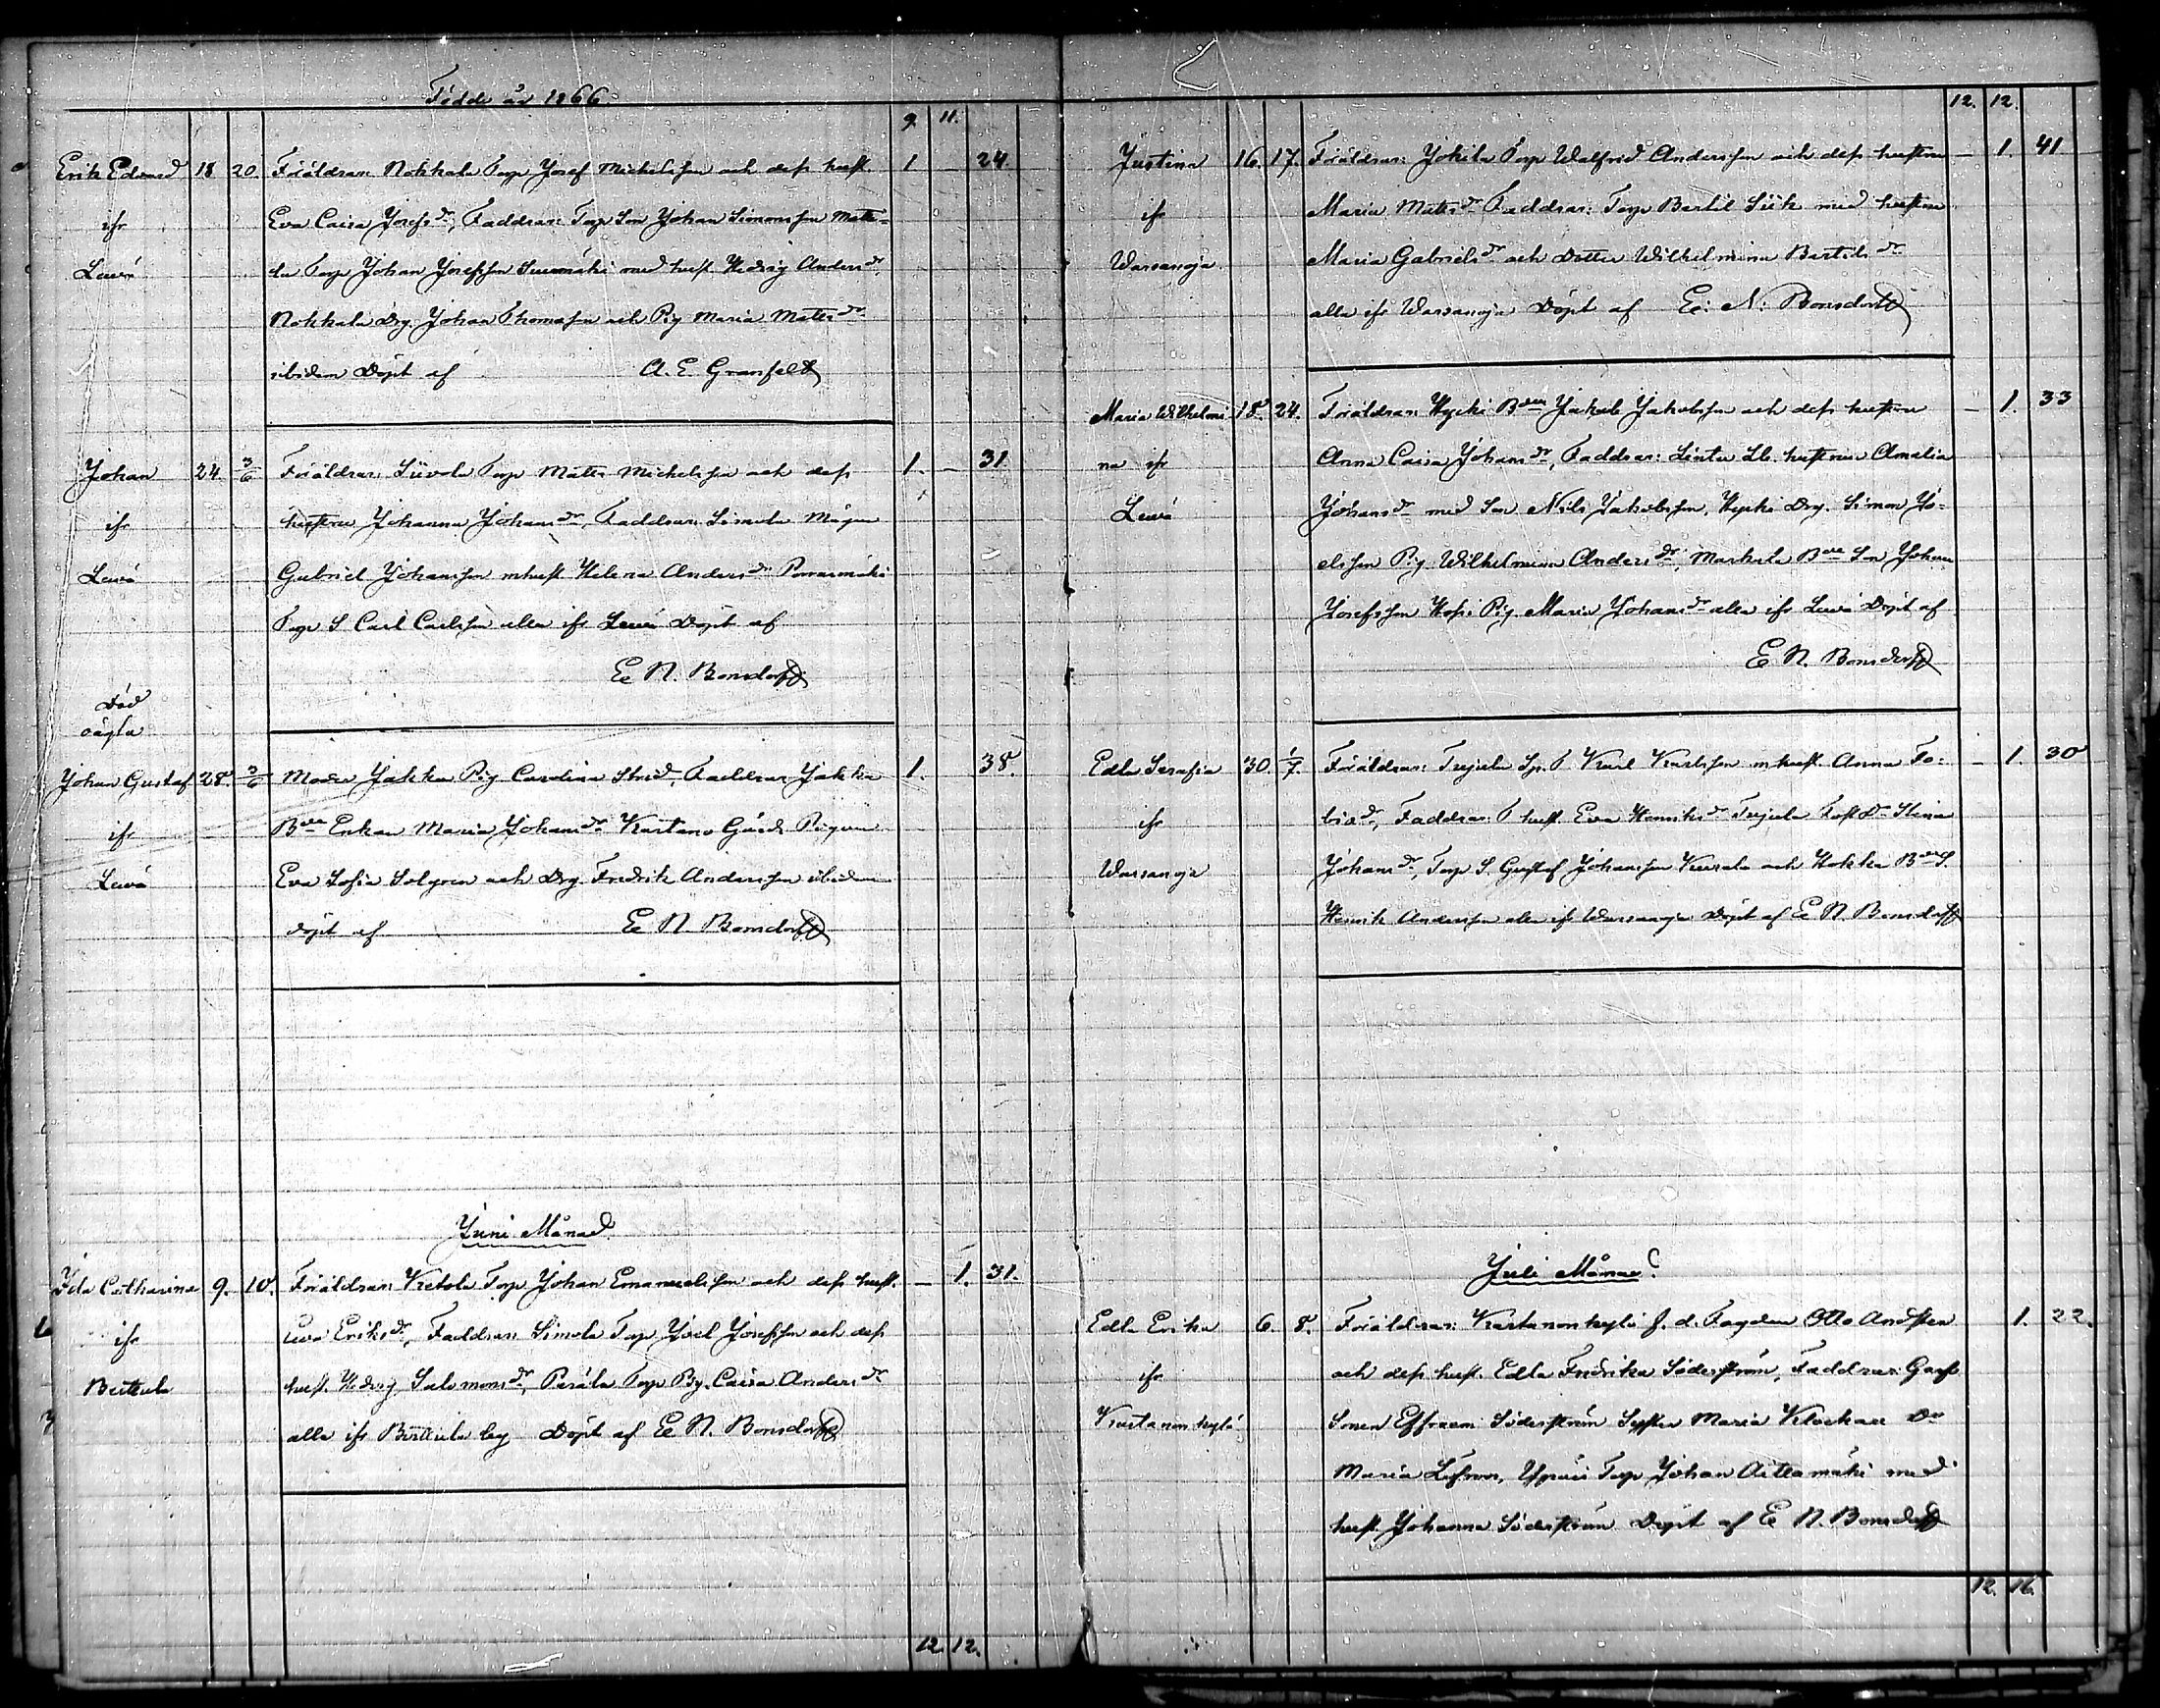 Födde år 1866
9. 11.
Erik Edvard 18 20. Föräldrar: Nohkala Torp Josef Michelsson och dess hust. 1 24.
ifr Eva Caisa Josefs dr, Faddrar: Torp Son Johan Simonsson Matti-
Levä la Torp Johan Josefsson med hust. Hedvig Anders dr,
Nohkala Drg Johan Thomasson och Pig Maria Matts dr
ibidem Döpt af A. E. Granfelt
Johan 24. 3/6 Föräldrar: Siivola Torp Matts Michelsson och dess 1. – 31
ifr hustru Johanna Johans dr, Faddrar: Simola Mågen
Levä Gabriel Johansson mhust Helena Anders dr
Torp S Carl Carlsson alla ifr Levä Döpt af
E N. Bonsdorff
Död
oägta
Johan Gustaf 28. 3/6 Moder Jakka Pig Carolina Strid, Faddrar: Jakka 1. 38.
ifr Bde Enkan Maria Johans dr Kartano Gårds Pigan
Levä Eva Sofia Solgren och Drg. Fredrik Andersson ibidem
döpt af E N. Bonsdorff
Juni Månad
Ida Catharina 9. 10. Föräldrar: Ketola Torp Johan Emanuelsson och dess hust. – 1. 31.
ifr Eva Eriks dr, Faddrar: Simola Torp Joel Josefsson och dess
Berttula hust. Hedvig Salomons dr, Perälä Torp Pig. Caisa Anders dr
alla ifr Berttula by Döpt af E N. Bonsdorff
12. 12.
12. 12.
Justina 16. 17. Föräldrar: Jokila Torp Walfrid Andersson och dess hustru – 1. 41
ifr Maria Matts dr Faddrar: Torp Bertil Siik med hustru
Warsanoja Maria Gabriels dr och Dotter Wilhelmina Bertils dr
alla ifr Warsanoja Döpt af E. N. Bonsdorff
Maria Wilhelmi- 18. 24. Föräldrar: Hycki Bde Jakob Jakobsson och dess hustru – 1. 33
na ifr Anna Caisa Johans dr, Faddrar: Lintu Lb. hustru Amalia
Levä Johans dr med Son Nils Jakobsson, Hycki Drg. Simon Jo-
elsson Pig Wilhelmina Anders dr, Markula Bde Son Johan
Josefsson Pig. Maria Johans dr alla ifr Levä Döpt af
E N. Bonsdorff
Edla Serafia 30. 1/7. Föräldrar: Torp. Karl Karlsson mhust. Anna To- – 1. 30
ifr bias dr, Faddrar: hust. Eva Henriks dr Stina
Warsanoja Johans dr, Torp S. Gustaf Johansson och Hokka Bde S.
Henrik Andersson alla ifr Warsanoja Döpt af E N. Bonsdorff
Juli Månad
Edla Erika 6. 8. Föräldrar: Kartanonkylä f. d. Fogden Otto 1. 22.
ifr och dess hust. Edla Fredrika Söderström, Faddrar:
Kartanonkylä Sonen Effraem Söderström Maria
Maria Torp Johan Aittamäki med
hust Johanna Söderström Döpt af E N. Bonsdorff
12. 16.